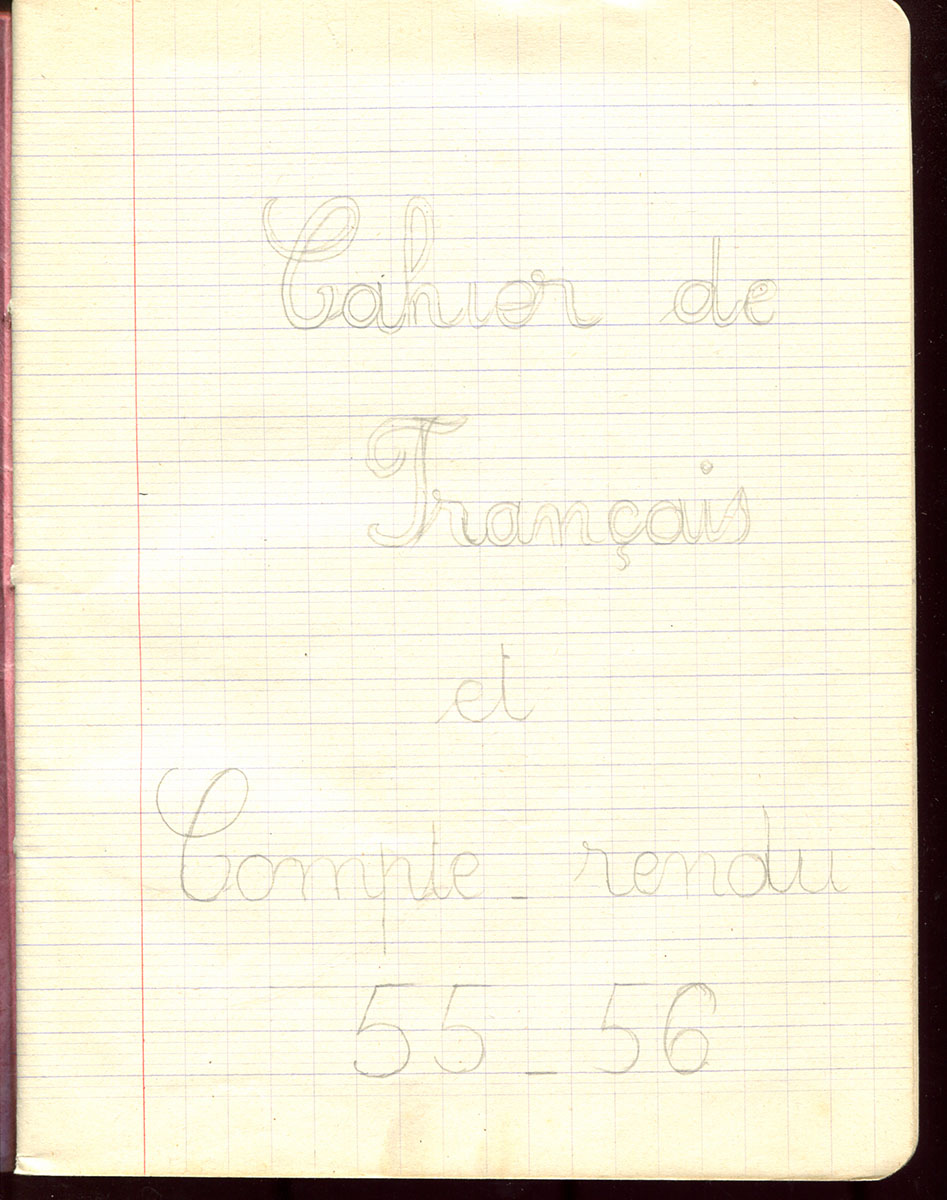 Cahier de
Français
et
Compte - rendu
55 - 56